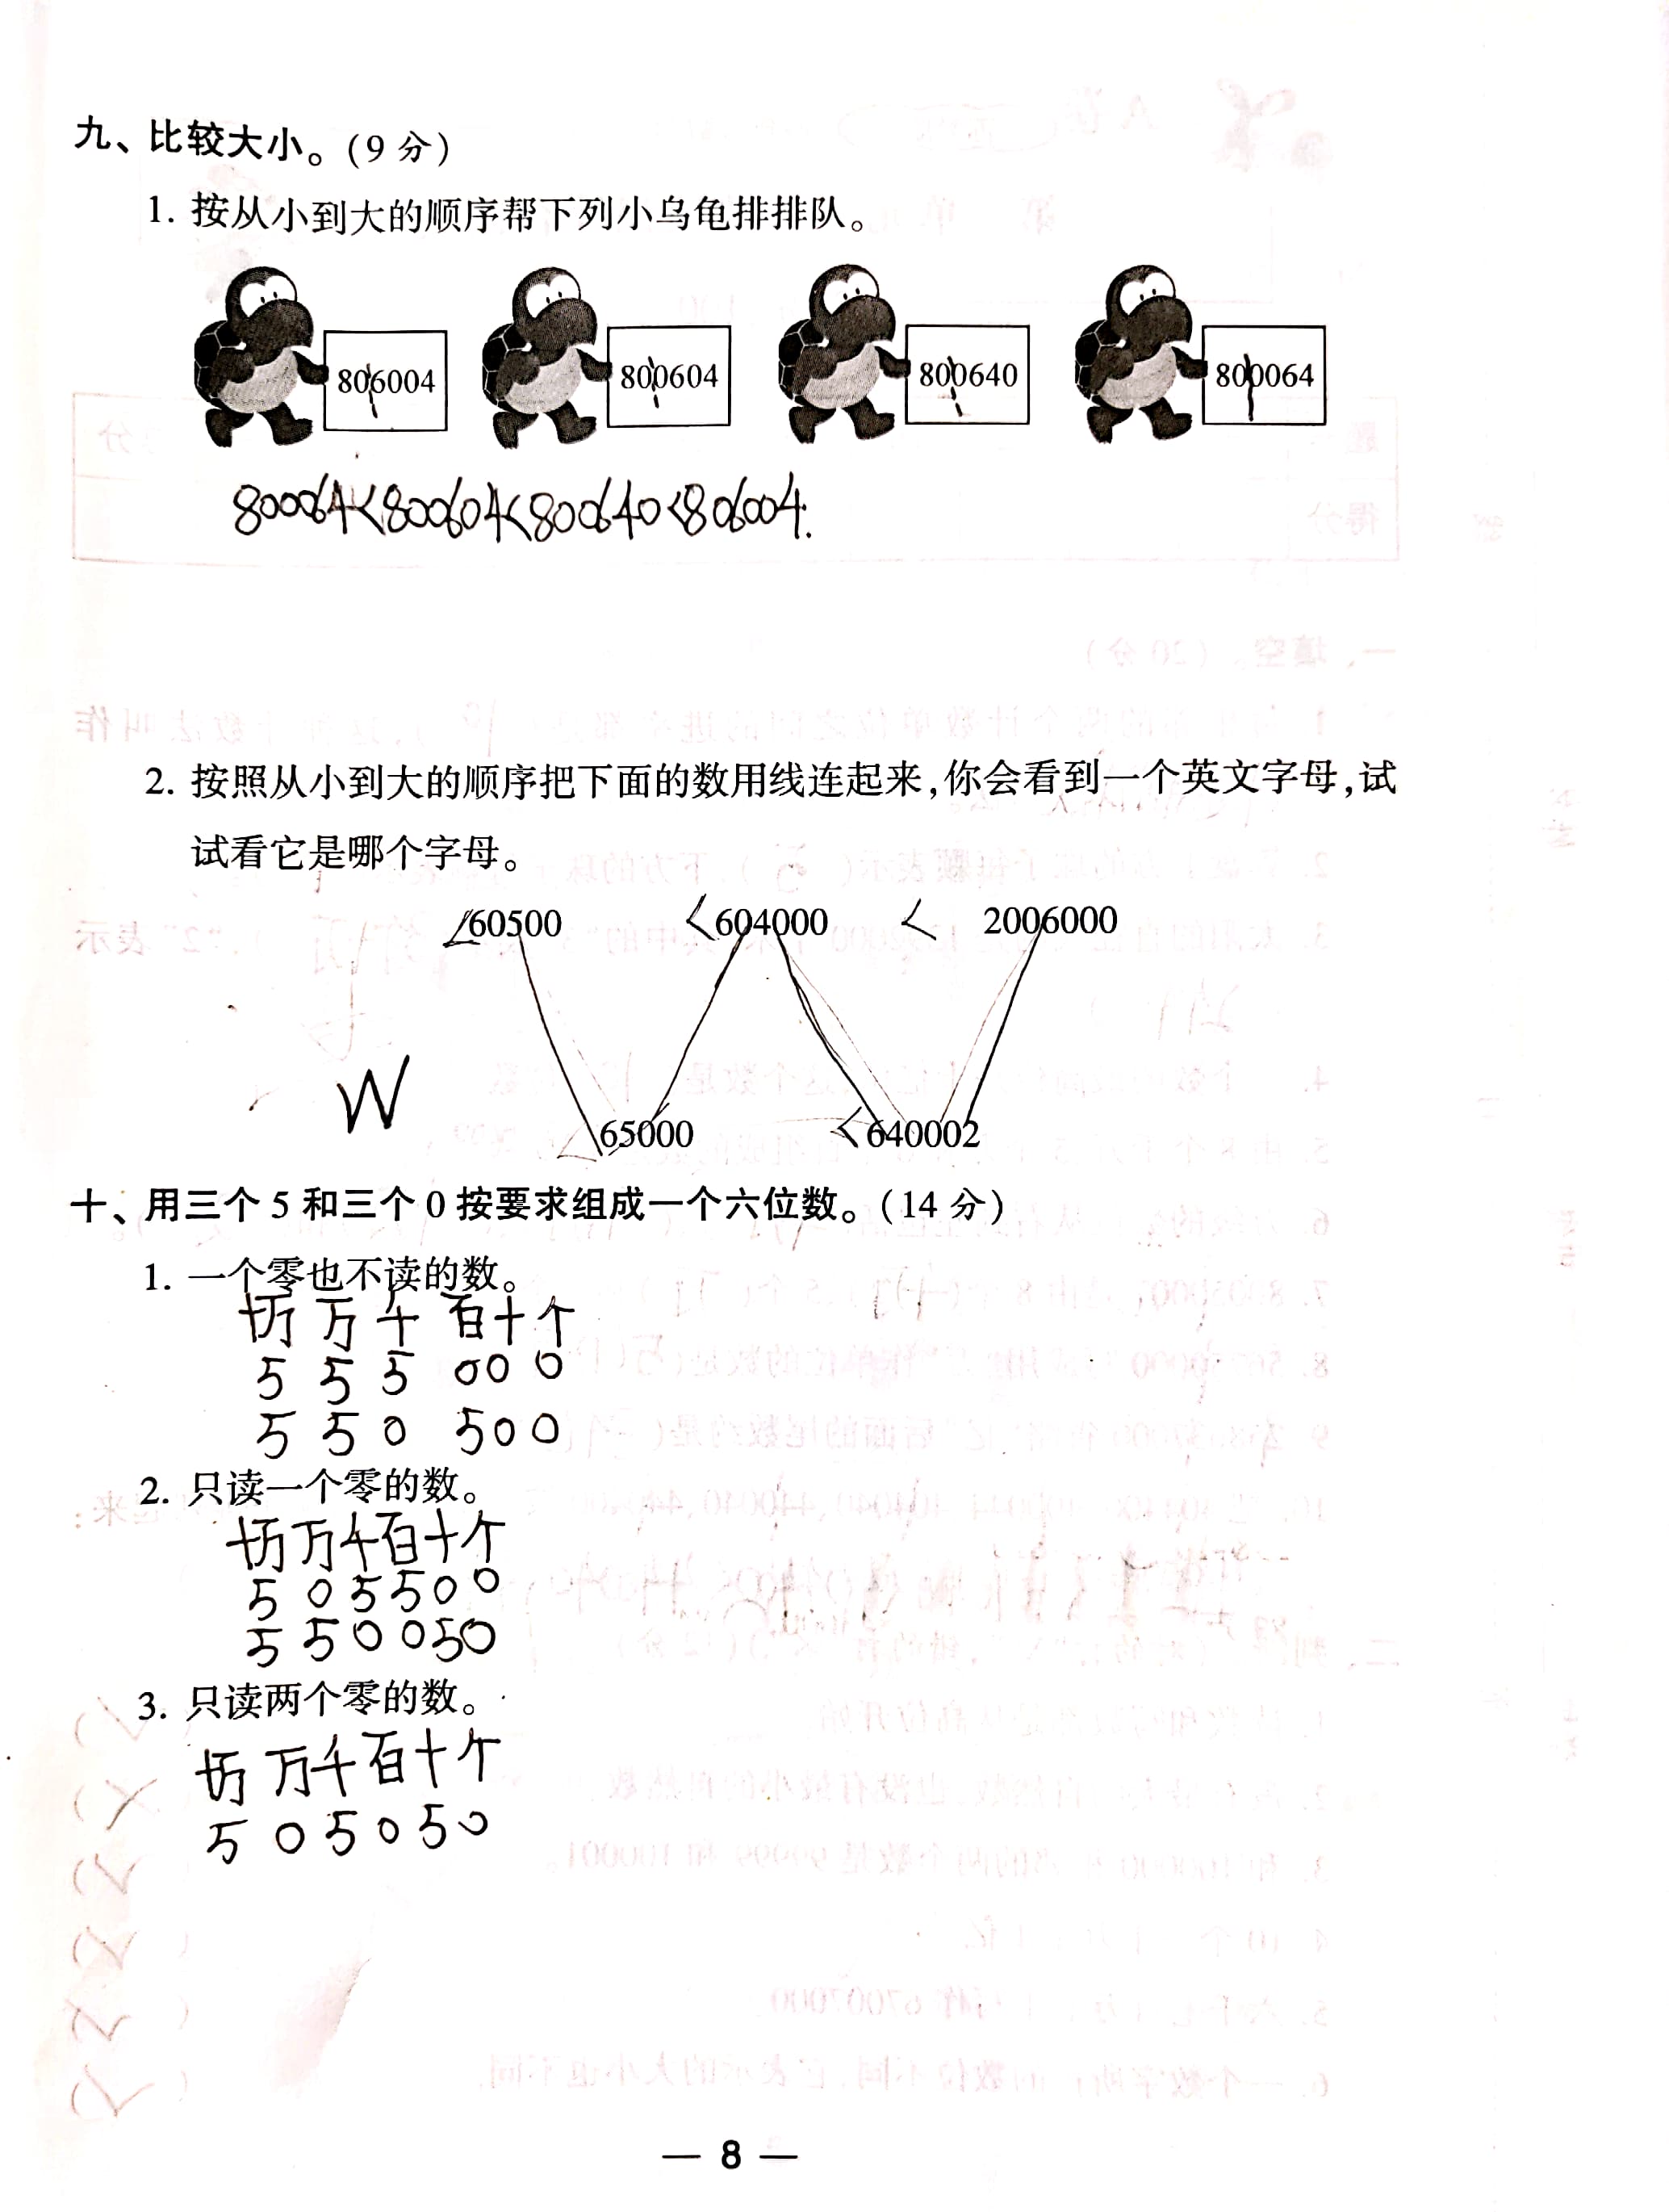 九、比较大小。(9 分)
1. 按从小到大的顺序帮下列小乌龟排排队。
806004 800604 800640 800064
800064<800604<800640<806004.
2. 按照从小到大的顺序把下面的数用线连起来,你会看到一个英文字母,试
试看它是哪个字母。
<60500 <604000 < 2006000
W
<65000 <640002
十、用三个 5 和三个 0 按要求组成一个六位数。(14 分)
1. 一个零也不读的数。
十万 万 千 百 十 个
5 5 5 0 0 0
5 5 0 5 0 0
2. 只读一个零的数。
十万 万 千 百 十 个
5 0 5 5 0 0
5 5 0 0 5 0
3. 只读两个零的数。
十万 万 千 百 十 个
5 0 5 0 5 0
— 8 —